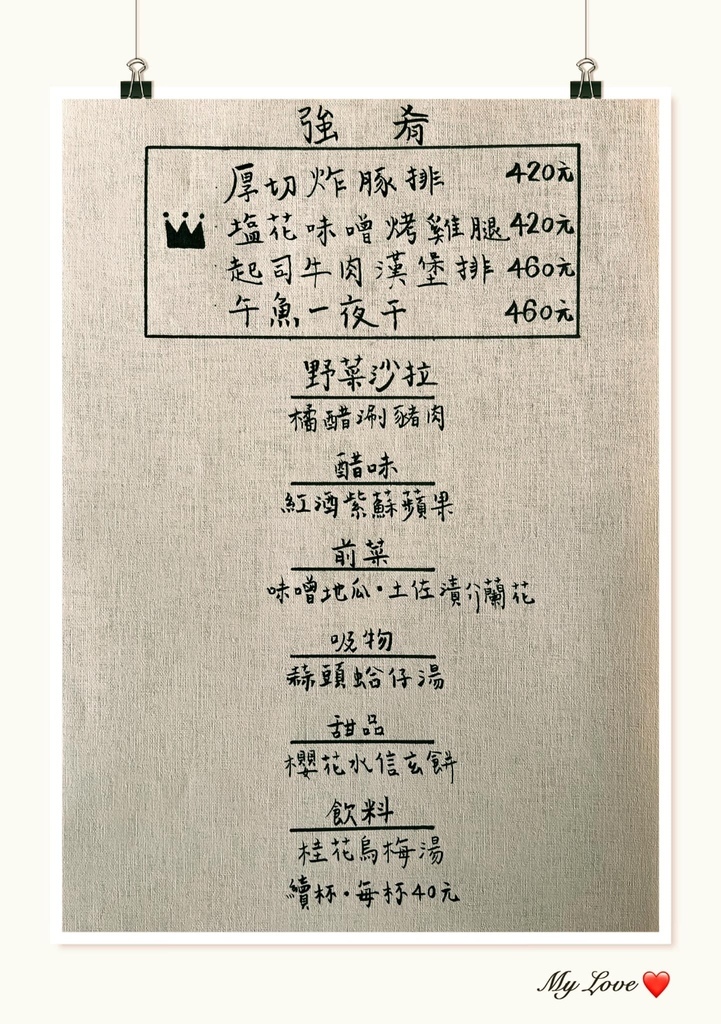 強 肴
厚切炸豚排 420元
塩花味噌烤雞腿 420元
起司牛肉漢堡排 460元
午魚一夜干 460元
野菜沙拉
橘醋涮豬肉
醋味
紅酒紫蘇蘋果
前菜
味噌地瓜·土佐漬芥蘭花
吸物
蒜頭蛤仔湯
甜品
櫻花水信玄餅
飲料
桂花烏梅湯
續杯·每杯40元
My Love